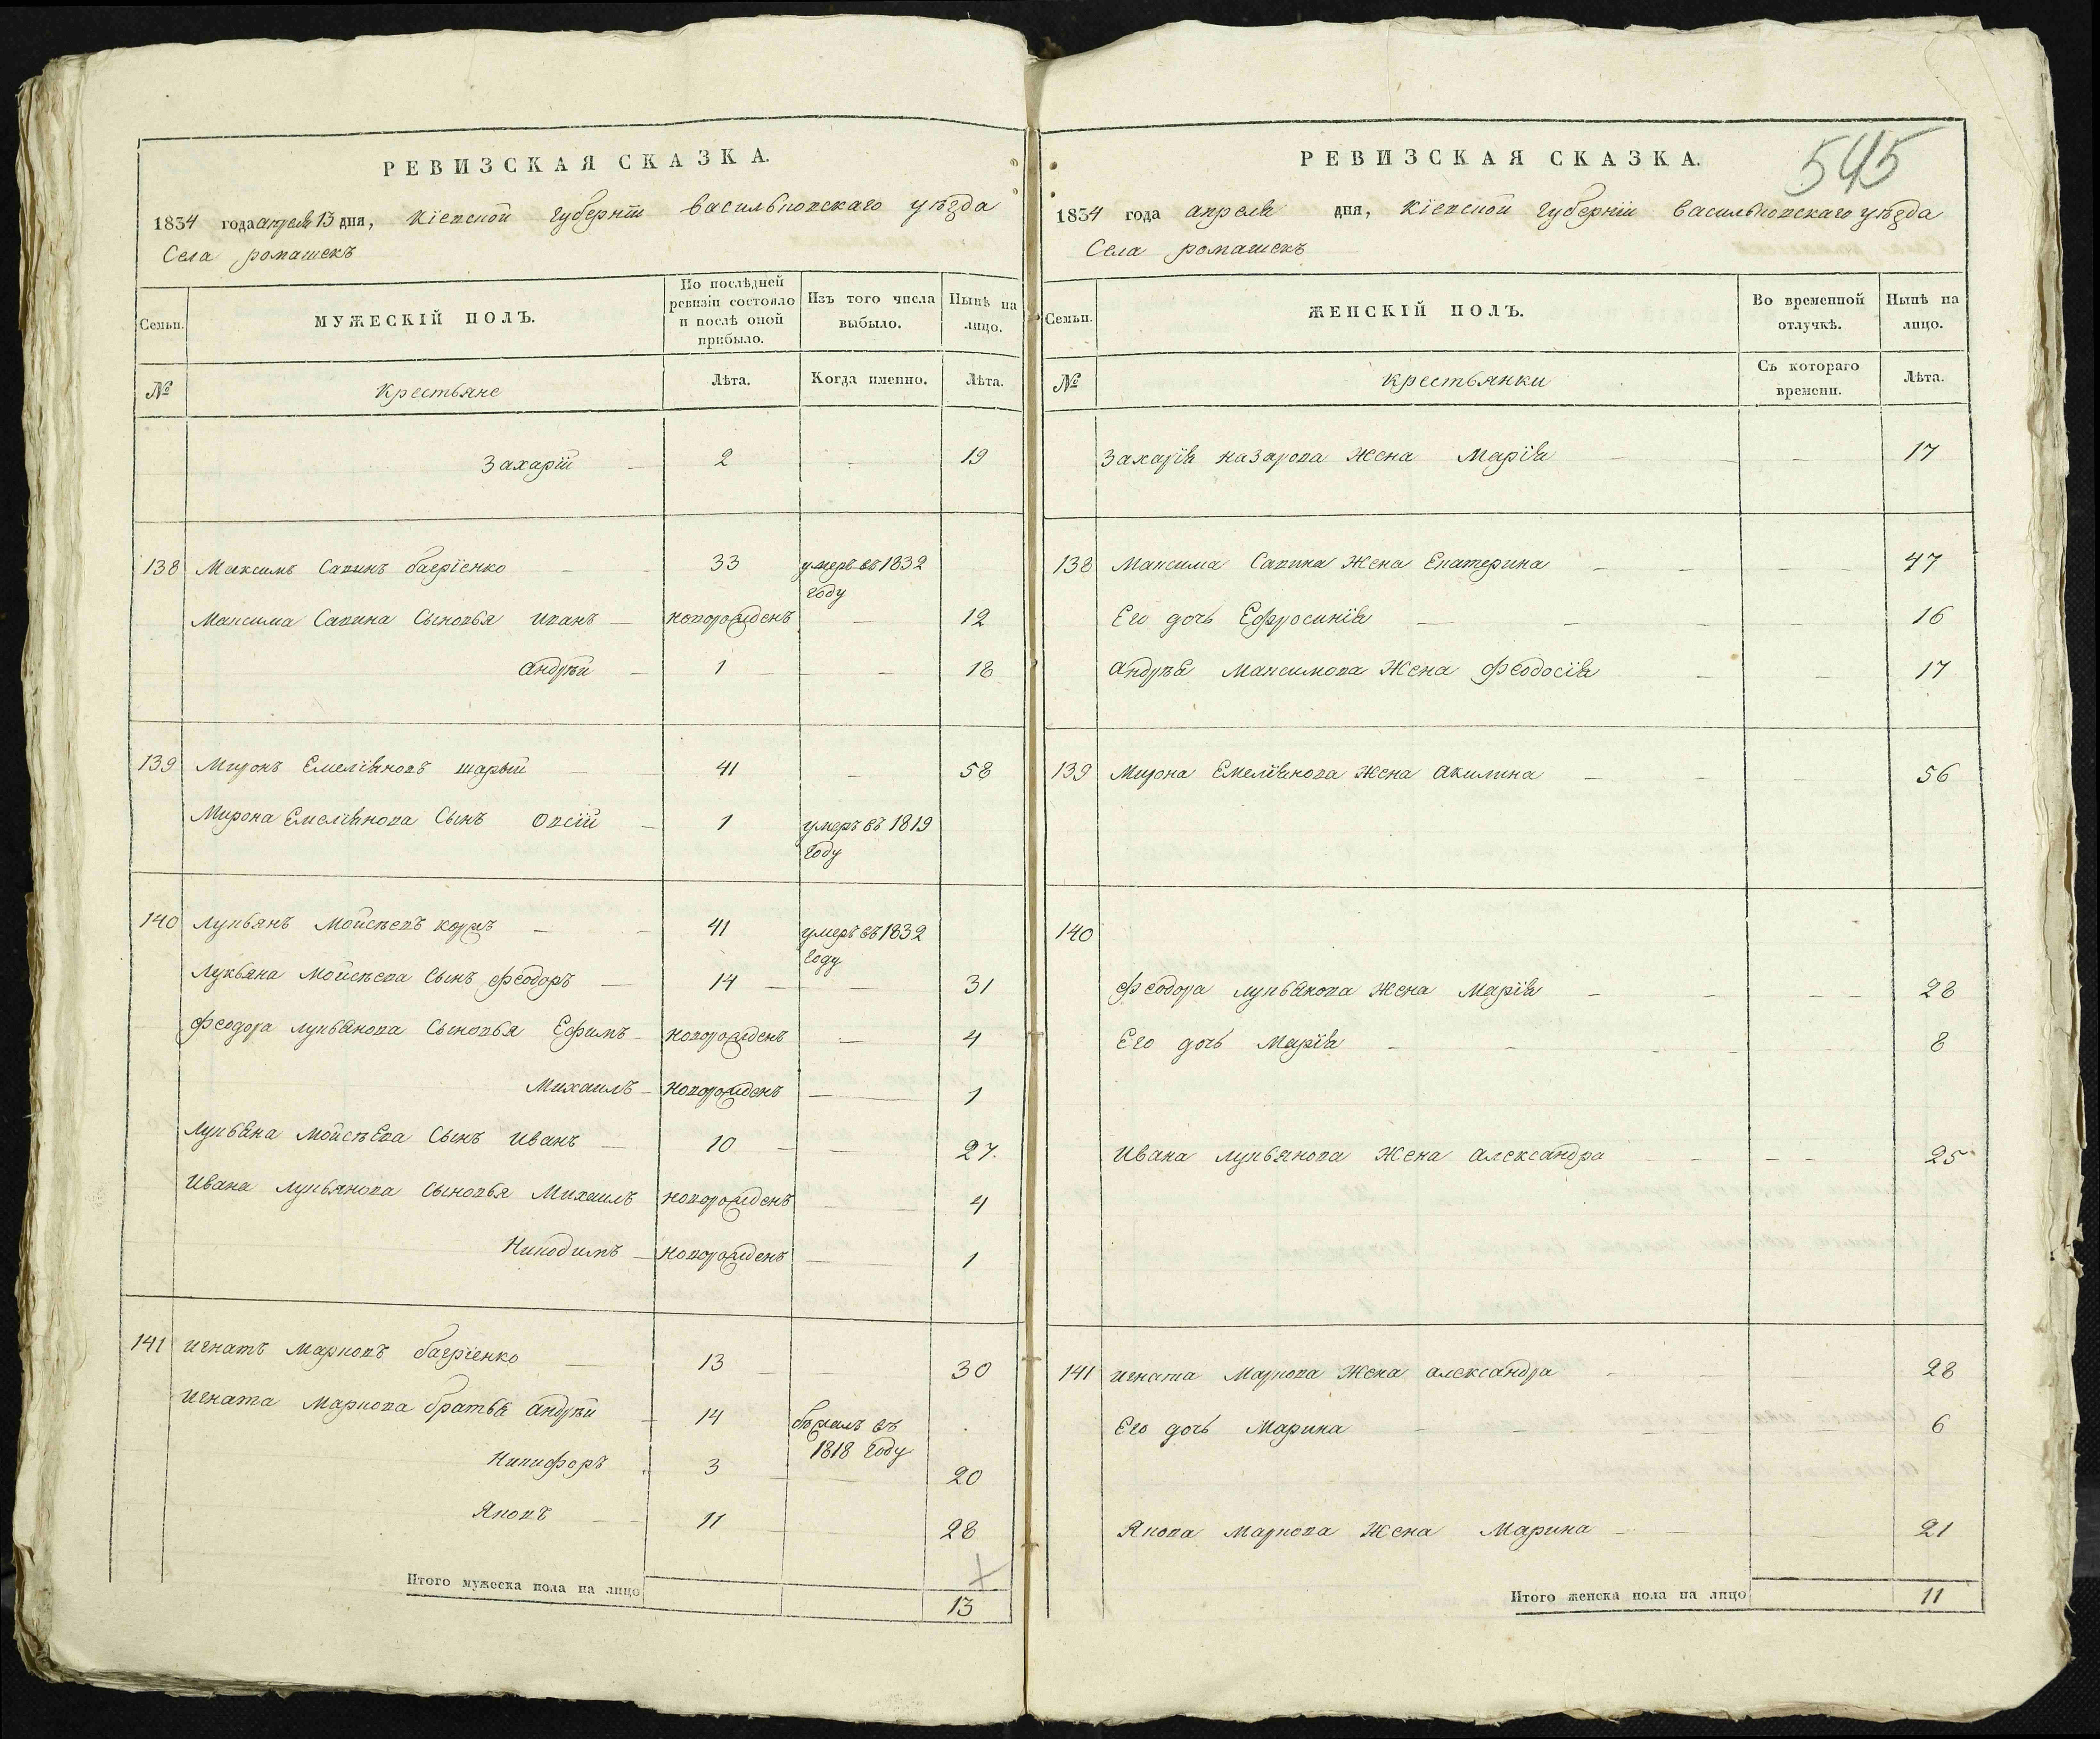 РЕВИЗСКАЯ СКАЗКА.
1834 года апреля 13 дня, Кіевской губерніи васильковскаго уѣзда
Села ромашекъ
Семьи.
МУЖЕСКІЙ ПОЛЪ.
По послѣдней ревизіи состояло и послѣ оной прибыло.
Изъ того числа выбыло.
Нынѣ на лицо.
№
Крестьяне
Лѣта.
Когда именно.
Лѣта.
Захарій 2 — 19
138 Максимъ Савинъ багріенко — — 33 умеръ въ 1832 году
Максима Савина Сыновья иванъ — новорожденъ — 12
андрѣй — 1 — — 18
139 Миронъ Емеліяновъ шарый 41 — 58
Мирона Емеліянова Сынъ Овсій — 1 умеръ въ 1819 году
140 Лукьянъ Мойсѣевъ коржъ — — 41 умеръ въ 1832 году
Лукьяна Мойсѣева Сынъ феодоръ — 14 — — 31
феодора лукьянова Сыновья Ефимъ — новорожденъ — 4
Михаилъ — новорожденъ — 1
Лукьяна Мойсѣева Сынъ иванъ — 10 — — 27.
Ивана лукьянова Сыновья Михаилъ новорожденъ — — 4
Никодимъ — новорожденъ — 1
141 игнатъ Марковъ багріенко — 13 — — 30
игната Маркова братья андрѣй — 14 бѣжалъ въ 1818 году
Никифоръ 3 — 20
Яковъ — — 11 28
Итого мужеска пола на лицо 13
545
РЕВИЗСКАЯ СКАЗКА.
1834 года апреля дня, Кіевской губерніи васильковскаго уѣзда
Села ромашекъ
Семьи.
ЖЕНСКІЙ ПОЛЪ.
Во временной отлучкѣ.
Нынѣ на лицо.
№
крестьянки
Съ котораго времени.
Лѣта.
Захарія назарова жена Марія — — 17
138 Максима Савина жена Екатерина — — — — 47
Его дочь Ефросинія — — — — 16
андрѣя Максимова жена Феодосія — — 17
139 Мирона Емеліянова жена акилина — — — 56
140
феодора лукьянова жена Марія — — — — 28
Его дочь Марія — — — — 8
Ивана лукьянова жена александра — — — 25
141 игната Маркова жена александра — — — 28
Его дочь Марина — — — — 6
Якова Маркова жена Марина — 21
Итого женска пола на лицо 11